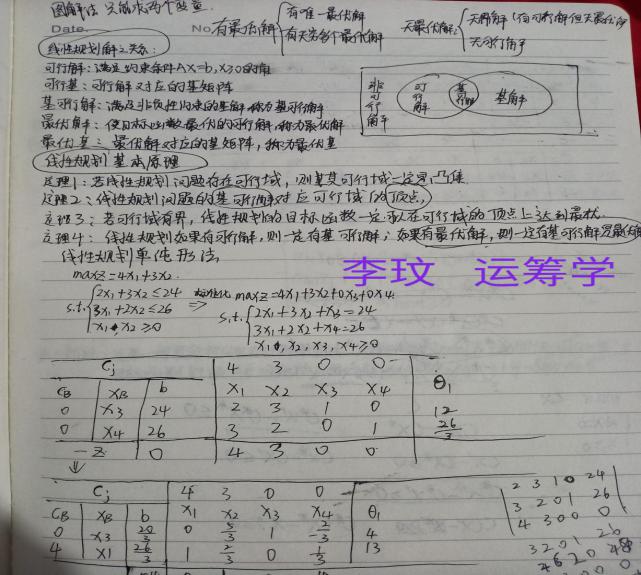 图解法 只能求两个变量.
Date.
No.
有最优解 { 有唯一最优解
有无穷多个最优解
无最优解 { 无界解(有可行解但无最优解
无可行解
线性规划解之关系:
可行解: 满足约束条件AX=b, X≥0的解
可行基: 可行解对应的基矩阵
基可行解: 满足非负性约束的基解,称为基可行解
最优解: 使目标函数最优的可行解,称为最优解
最优基: 最优解对应的基矩阵,称为最优基
非可行解 可行解 基可行解 基解
线性规划基本原理
定理1: 若线性规划问题存在可行域,则其可行域一定是凸集
定理2: 线性规划问题的基可行解对应可行域的顶点,
定理3: 若可行域有界,线性规划的目标函数一定可以在可行域的顶点上达到最优
定理4: 线性规划如果有可行解,则一定有基可行解; 如果有最优解,则一定有基可行解是最优解
线性规划单纯形法,
李玟 运筹学
maxZ=4x1+3x2.
s.t. { 2x1+3x2≤24
3x1+2x2≤26
x1,x2≥0
⇒ 标准化 maxZ=4x1+3x2+0x3+0x4
s.t. { 2x1+3x2+x3=24
3x1+2x2+x4=26
x1,x2,x3,x4≥0
Cj 4 3 0 0
CB XB b x1 x2 x3 x4 θ1
0 x3 24 2 3 1 0 12
0 x4 26 3 2 0 1 26/3
-Z 0 4 3 0 0
Cj 4 3 0 0
CB XB b x1 x2 x3 x4 θ1
0 x3 20/3 0 5/3 1 -2/3 4
4 x1 26/3 1 2/3 0 1/3 13
2 3 1 0 24
3 2 0 1 26
4 3 0 0 0
3 2 0 1 26